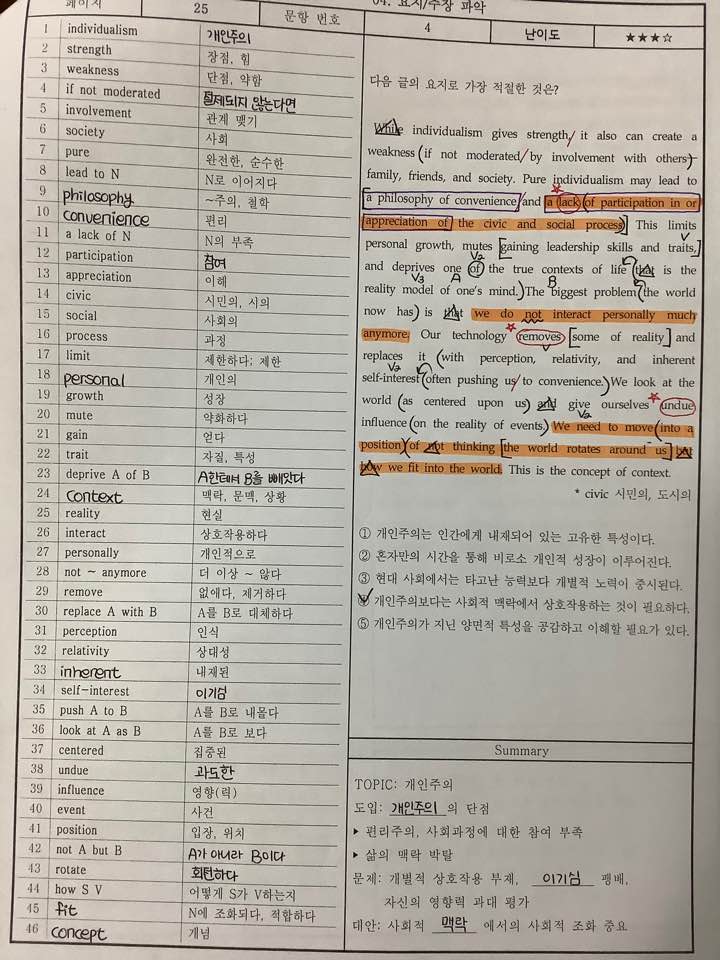 페이지 25 문항 번호 4 난이도 ★★★☆
04. 요지/주장 파악
1 individualism 개인주의
2 strength 장점, 힘
3 weakness 단점, 약함
4 if not moderated 절제되지 않는다면
5 involvement 관계 맺기
6 society 사회
7 pure 완전한, 순수한
8 lead to N N로 이어지다
9 philosophy ~주의, 철학
10 convenience 편리
11 a lack of N N의 부족
12 participation 참여
13 appreciation 이해
14 civic 시민의, 시의
15 social 사회의
16 process 과정
17 limit 제한하다; 제한
18 personal 개인의
19 growth 성장
20 mute 약화하다
21 gain 얻다
22 trait 자질, 특성
23 deprive A of B A한테서 B를 빼앗다
24 context 맥락, 문맥, 상황
25 reality 현실
26 interact 상호작용하다
27 personally 개인적으로
28 not ~ anymore 더 이상 ~ 않다
29 remove 없애다, 제거하다
30 replace A with B A를 B로 대체하다
31 perception 인식
32 relativity 상대성
33 inherent 내재된
34 self-interest 이기심
35 push A to B A를 B로 내몰다
36 look at A as B A를 B로 보다
37 centered 집중된
38 undue 과도한
39 influence 영향(력)
40 event 사건
41 position 입장, 위치
42 not A but B A가 아니라 B이다
43 rotate 회전한다
44 how S V 어떻게 S가 V하는지
45 fit N에 조화되다, 적합하다
46 concept 개념
다음 글의 요지로 가장 적절한 것은?
While individualism gives strength, it also can create a
weakness (if not moderated by involvement with others)-
family, friends, and society. Pure individualism may lead to
[a philosophy of convenience] and [a lack (of participation in or
appreciation of) the civic and social process]. This limits
personal growth, mutes [gaining leadership skills and traits,]
V
V2
and deprives one of the true contexts of life (that is the
V3 A B
reality model of one's mind.) The biggest problem (the world
now has) is that we do not interact personally much
anymore. Our technology removes [some of reality] and
V
replaces it (with perception, relativity, and inherent
V2
self-interest (often pushing us to convenience.) We look at the
world (as centered upon us) and give ourselves undue
V2
influence (on the reality of events.) We need to move (into a
position) (of not thinking [the world rotates around us] but
how we fit into the world. This is the concept of context.
* civic 시민의, 도시의
① 개인주의는 인간에게 내재되어 있는 고유한 특성이다.
② 혼자만의 시간을 통해 비로소 개인적 성장이 이루어진다.
③ 현대 사회에서는 타고난 능력보다 개별적 노력이 중시된다.
④ 개인주의보다는 사회적 맥락에서 상호작용하는 것이 필요하다.
⑤ 개인주의가 지닌 양면적 특성을 공감하고 이해할 필요가 있다.
Summary
TOPIC: 개인주의
도입: 개인주의 의 단점
▸ 편리주의, 사회과정에 대한 참여 부족
▸ 삶의 맥락 박탈
문제: 개별적 상호작용 부재, 이기심 팽배,
자신의 영향력 과대 평가
대안: 사회적 맥락 에서의 사회적 조화 중요